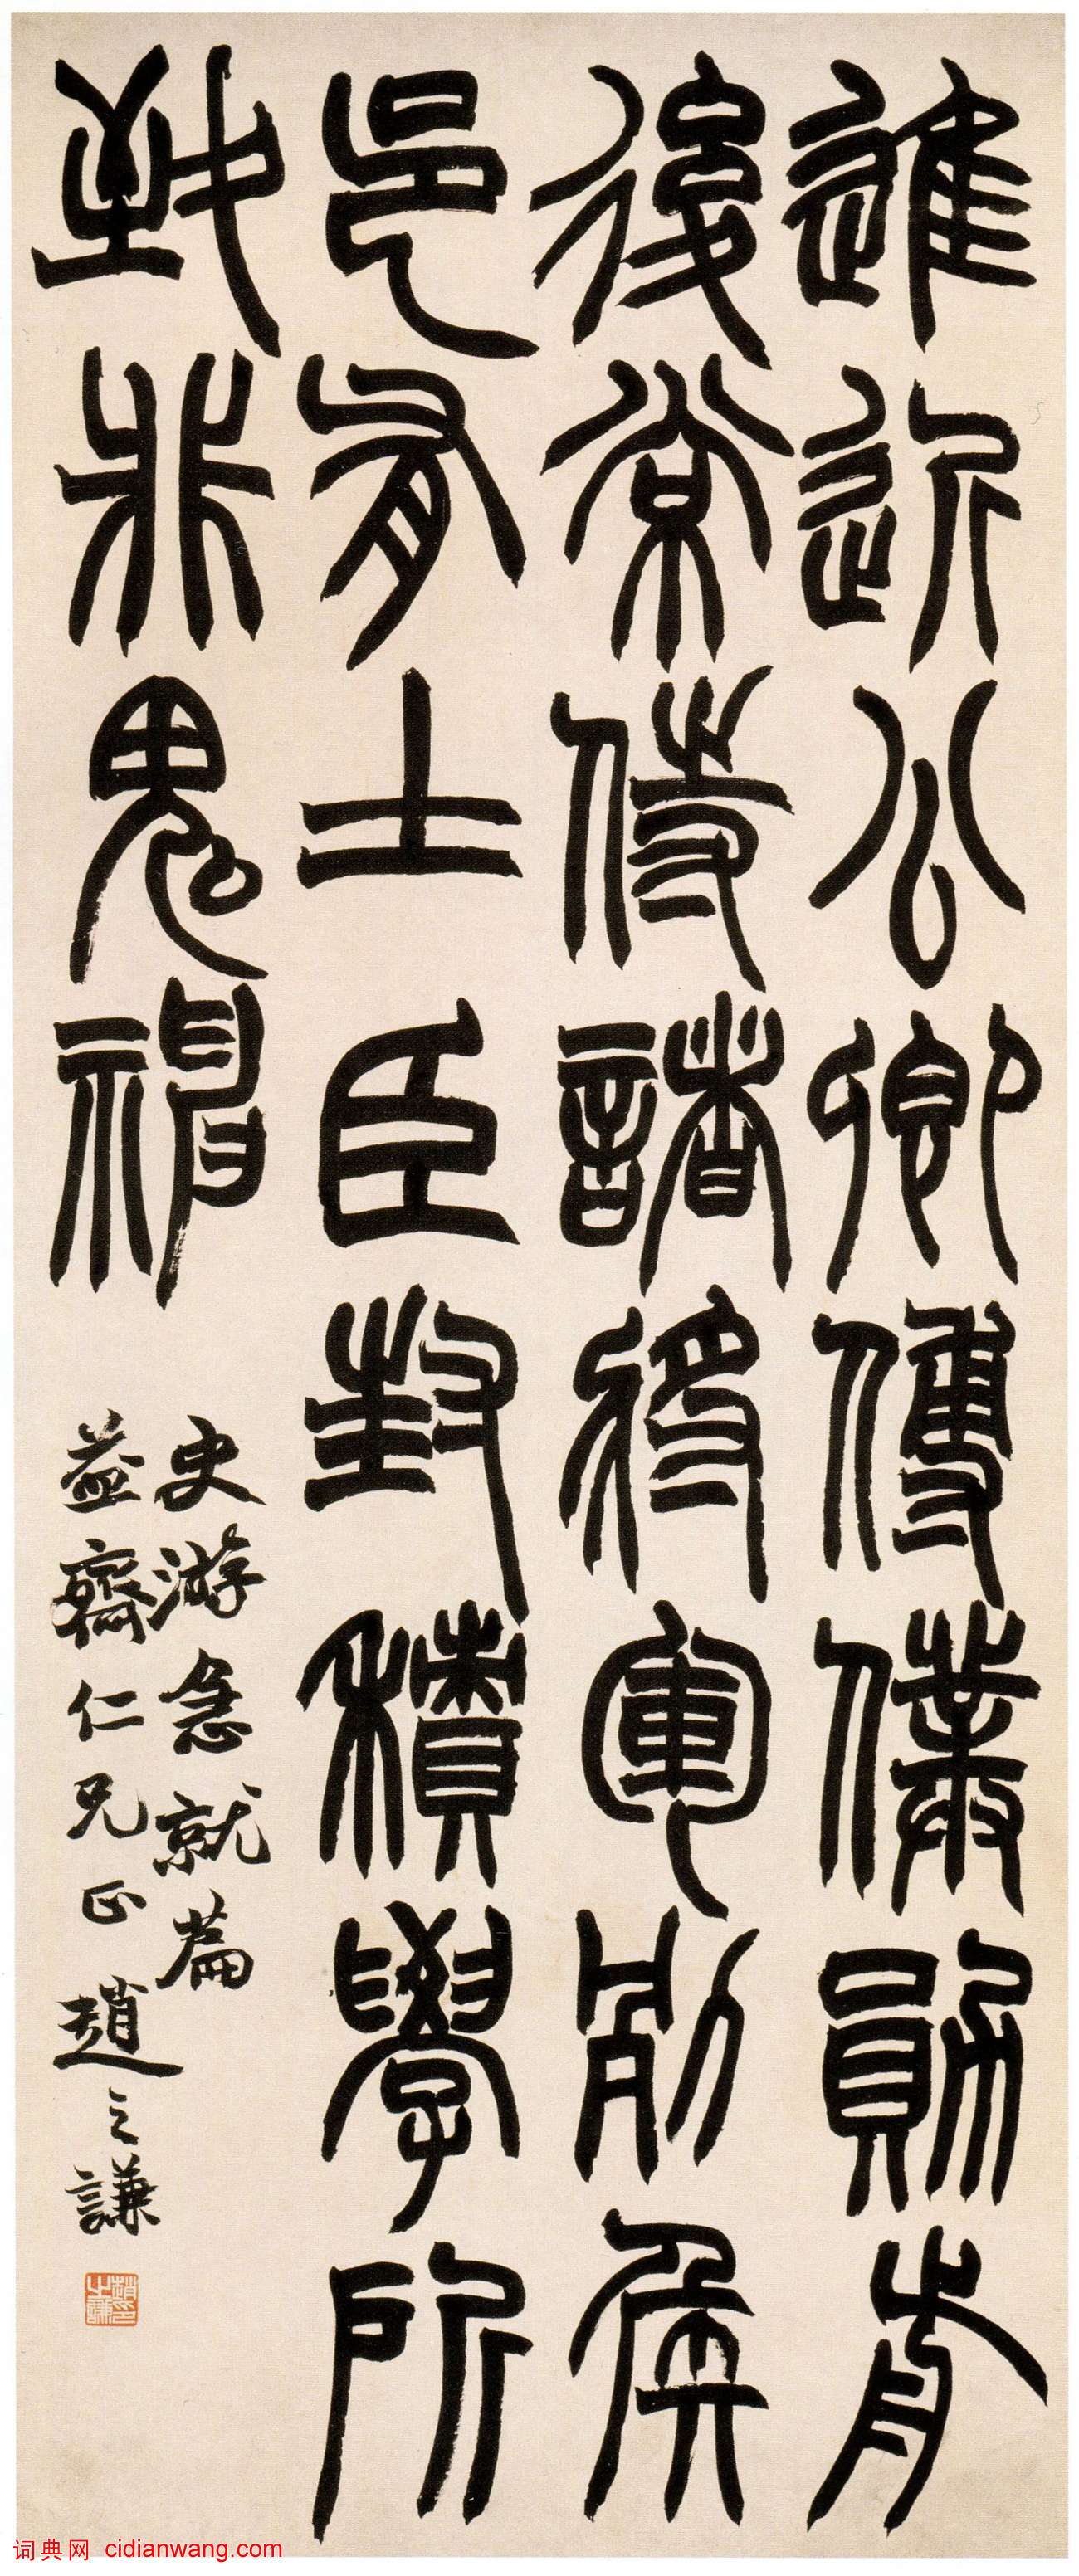 進近公卿傅僕勛前
後常侍諸將軍列侯
邑有土臣封積學所
致非鬼神
史游急就篇
益齋仁兄正 趙之謙
趙之謙印
词典网 cidianwang.com